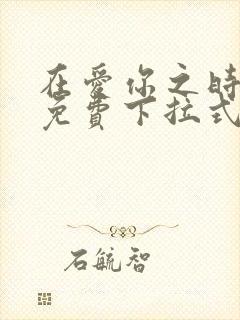 在愛你之時
免費下拉式
石毓智